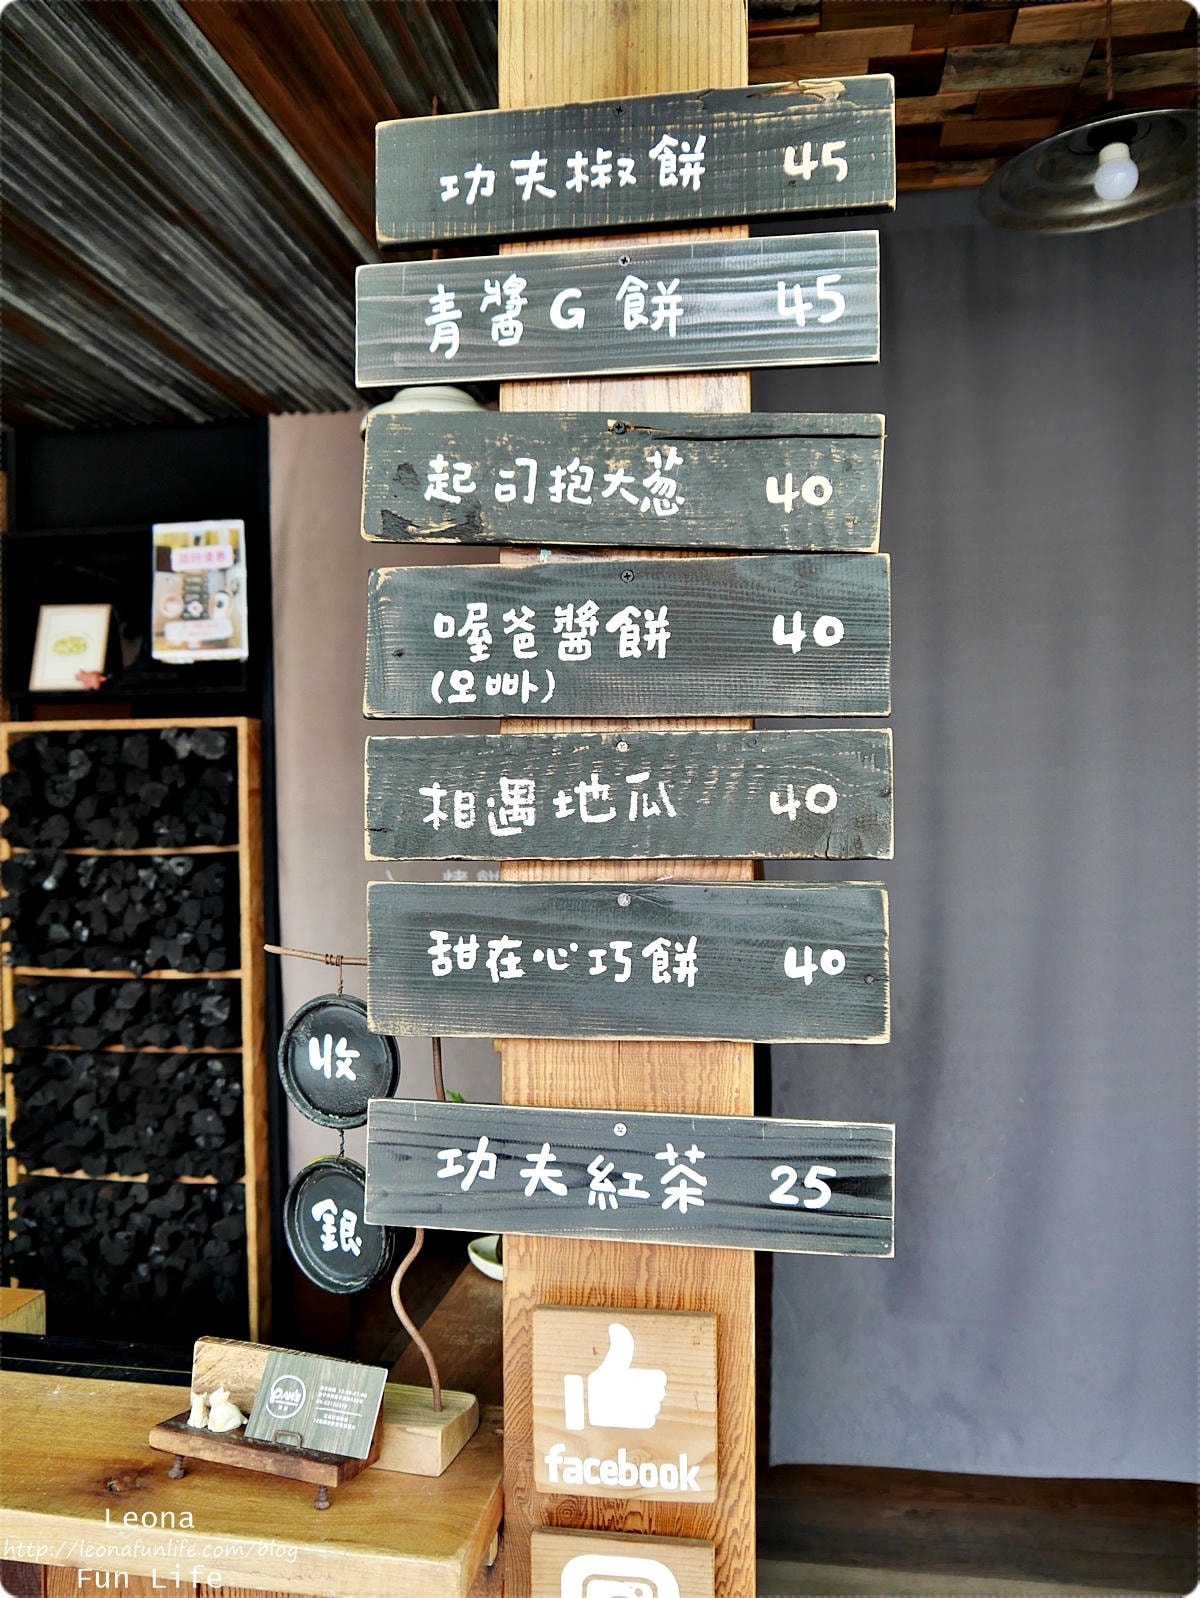 功夫椒餅 45
青醬G餅 45
起司抱大蔥 40
喔爸醬餅 40
(오빠)
相遇地瓜 40
甜在心巧餅 40
收
銀
功夫紅茶 25
facebook
Leona
http://leonafunlife.com/blog
Fun Life